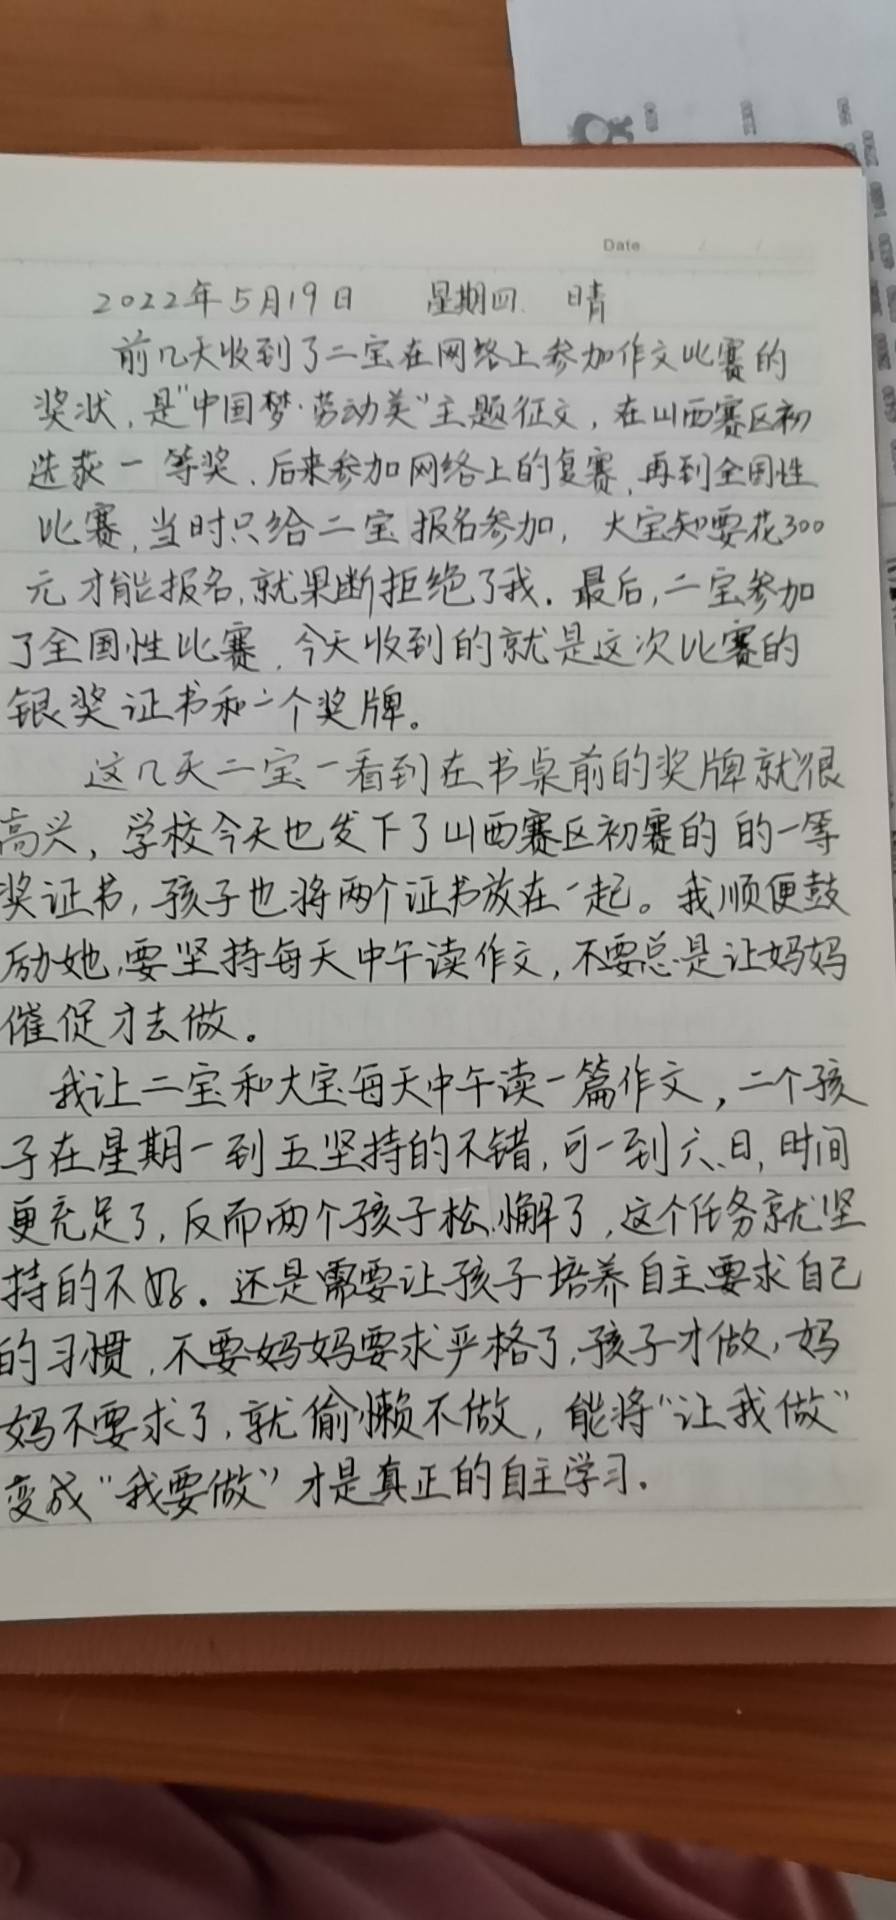 Date / /
2022年5月19日 星期四. 晴
前几天收到了二宝在网络上参加作文比赛的
奖状,是"中国梦·劳动美"主题征文,在山西赛区初
选获一等奖,后来参加网络上的复赛,再到全国性
比赛,当时只给二宝报名参加,大宝知要花300
元才能报名,就果断拒绝了我.最后,二宝参加
了全国性比赛,今天收到的就是这次比赛的
银奖证书和一个奖牌。
这几天二宝一看到在书桌前的奖牌就很
高兴,学校今天也发下了山西赛区初赛的的一等
奖证书,孩子也将两个证书放在一起。我顺便鼓
励她,要坚持每天中午读作文,不要总是让妈妈
催促才去做。
我让二宝和大宝每天中午读一篇作文,二个孩
子在星期一到五坚持的不错,可一到六、日,时间
更充足了,反而两个孩子松懈了,这个任务就坚
持的不好.还是需要让孩子培养自主要求自己
的习惯,不要妈妈要求严格了,孩子才做,妈
妈不要求了,就偷懒不做,能将"让我做"
变成"我要做"才是真正的自主学习.